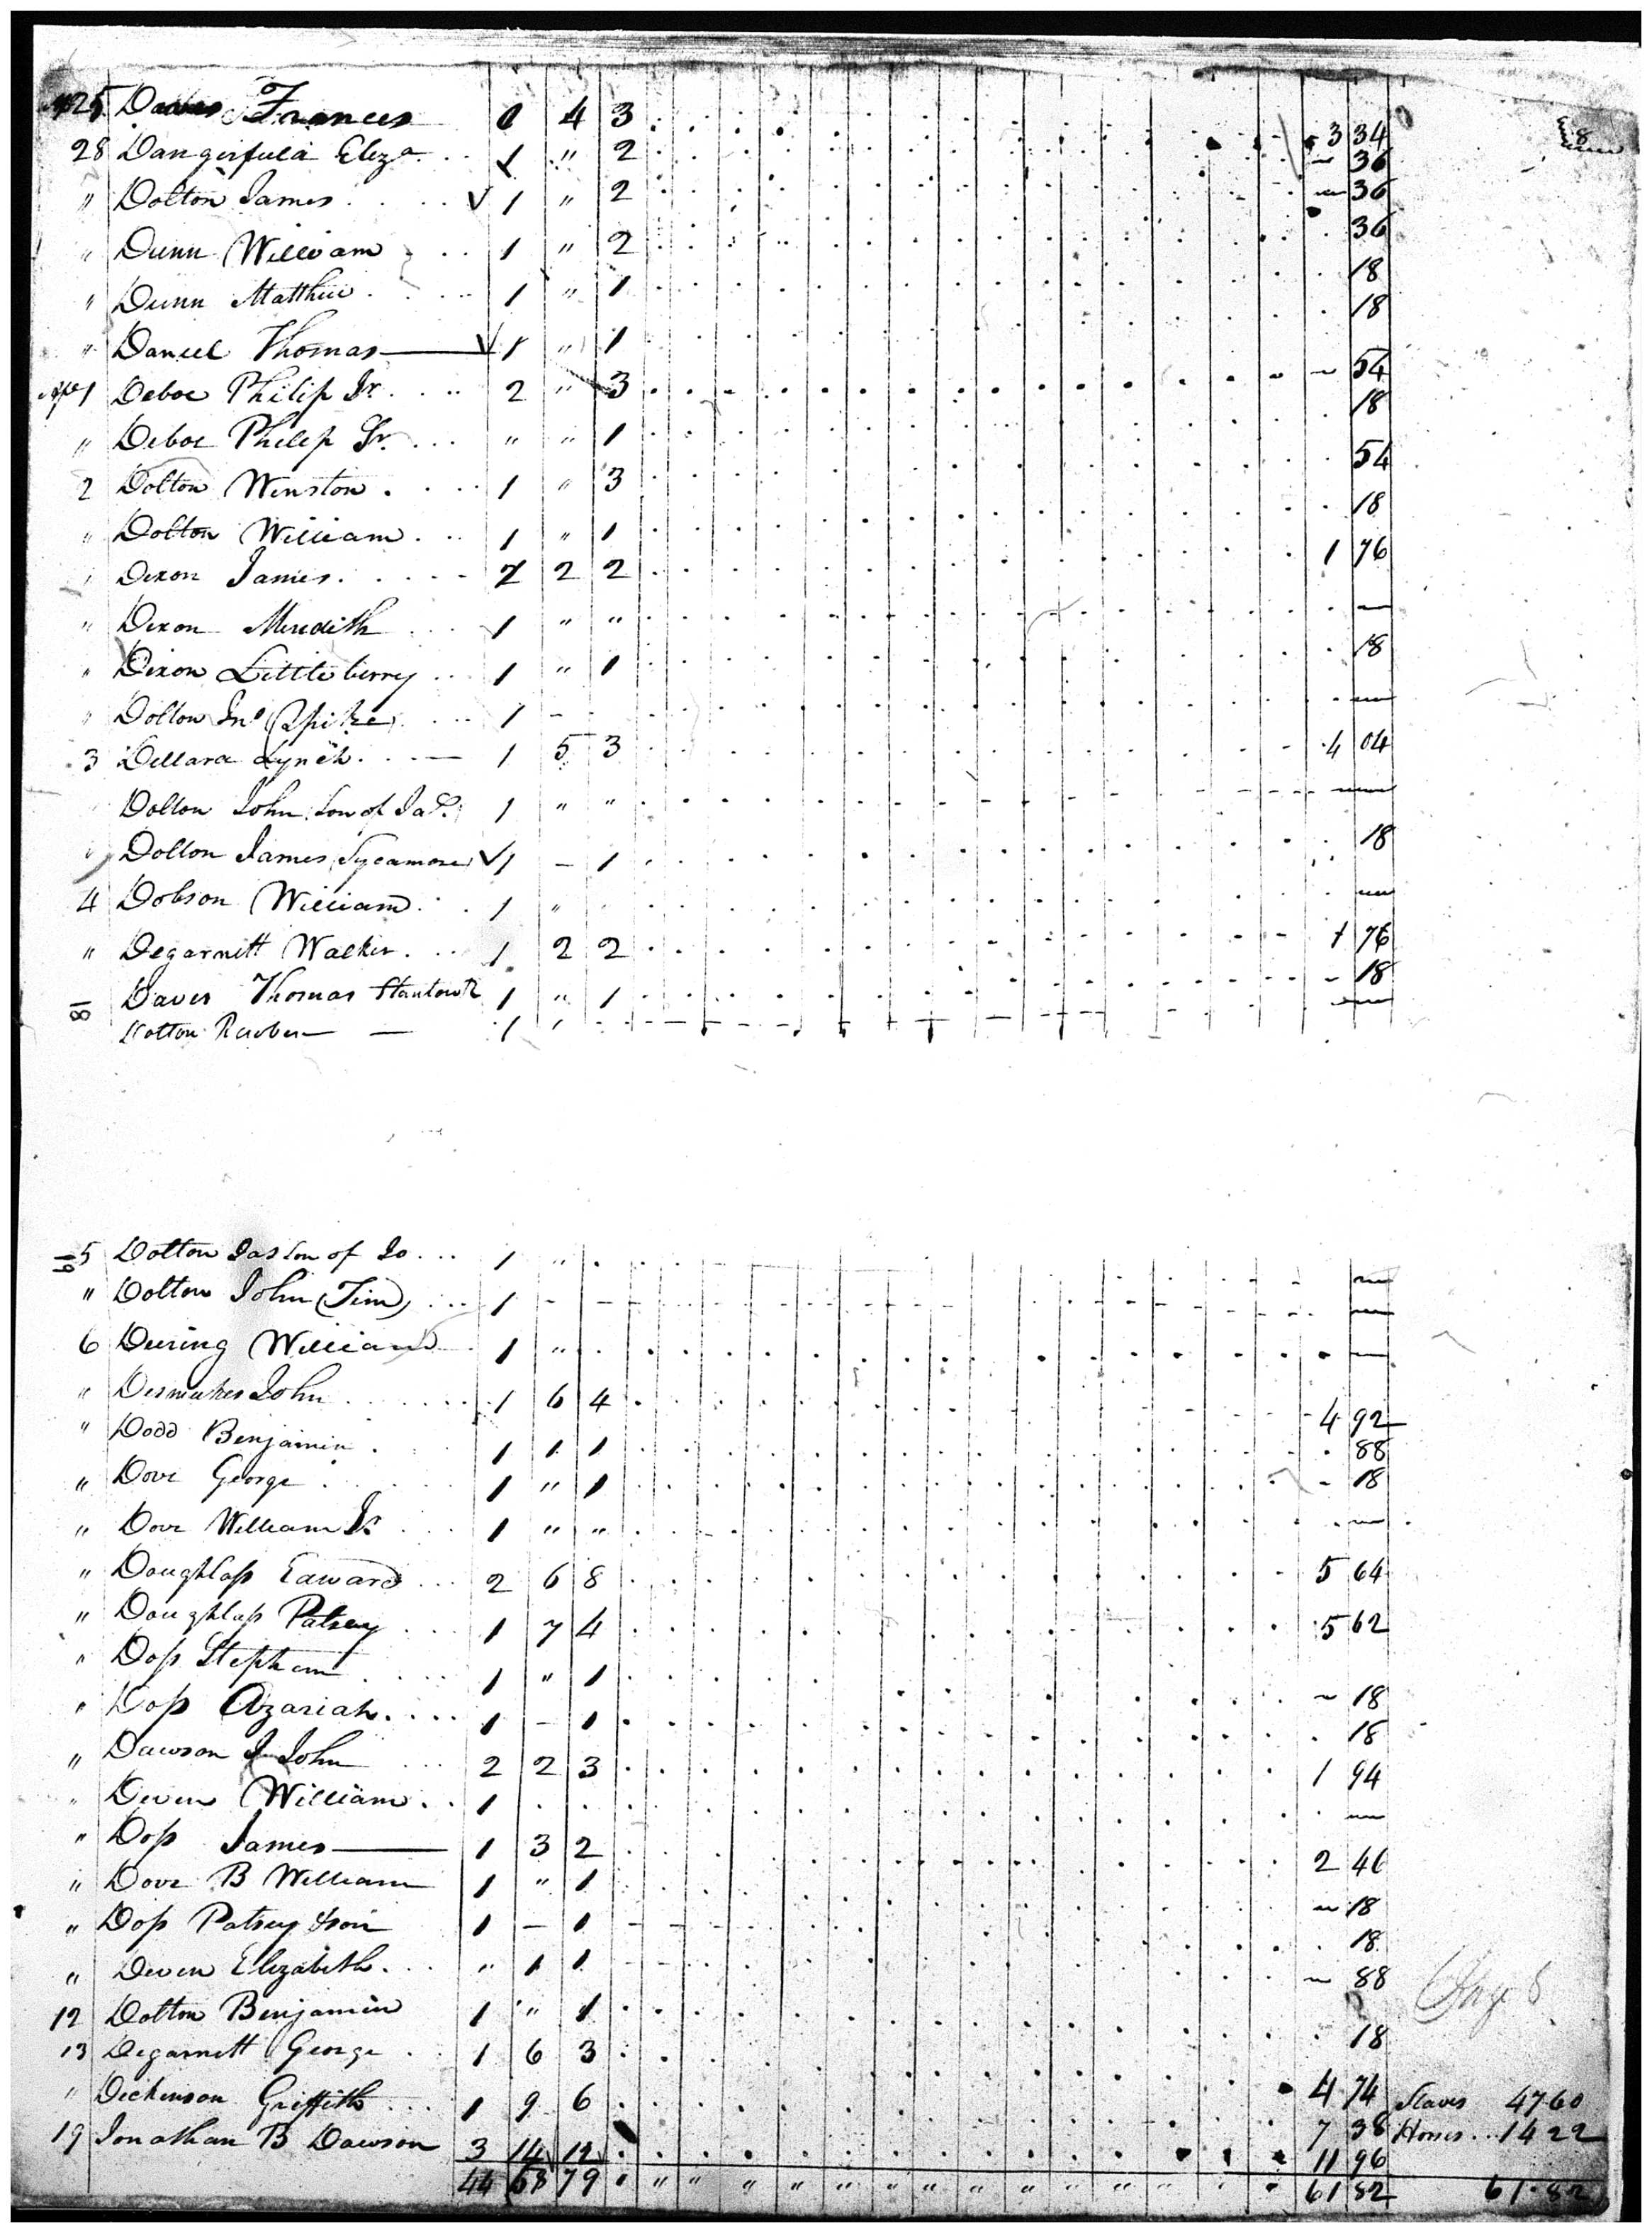 25 Davis Frances 1 4 3 3 34
28 Dangerfield Eliza 1 " 2 36
" Dolton James 1 " 2 36
" Dunn William 1 " 2 36
" Dunn Matthew 1 " 1 18
" Daniel Thomas 1 " 1 18
1 Deboe Philip Jr. 2 " 3 54
" Deboe Philip Sr. " " 1 18
2 Dolton Winston 1 " 3 54
" Dolton William 1 " 1 18
" Dixon James 2 2 2 1 76
" Dixon Meredith 1 " "
" Dixon Littleberry 1 " 1 18
" Dolton Jno (Spike) 1 -
3 Dellara Lynch 1 5 3 4 04
Dolton John Son of Jas. 1 " "
" Dolton James (Sycamore) 1 - 1 18
4 Dobson William 1 "
" Degarnett Walker 1 2 2 1 76
81 Davis Thomas 1 " 1 18
Dolton Reuben 1
5 Dolton Jas Son of Jo 1 "
" Dolton John (Tim) 1 -
6 During William 1 "
" Dismukes John 1 6 4 4 92
" Dodd Benjamin 1 1 1 88
" Dove George 1 " 1 18
" Dove William Jr 1 " "
" Doughlass Edward 2 6 8 5 64
" Doughlass Patsey 1 7 4 5 62
" Doss Stephen 1 " 1 18
" Doss Azariah 1 - 1 18
" Dawson J John 2 2 3 1 94
" Deven William 1
" Doss James 1 3 2 2 46
" Dove B William 1 " 1 18
" Doss Patsey & son 1 - 1 18
" Deven Elizabeth " 1 1 88
12 Dolton Benjamin 1 " 1 18
13 Degarnett George 1 6 3 4 74
" Dickenson Griffith 1 9 6 7 38 Slaves 47 60
19 Jonathan B Dawson 3 14 12 11 96 Horses 14 22
44 68 79 61 82 61.82